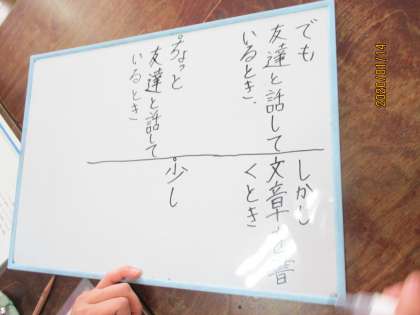 でも
友達と話して
いるとき.
しかし
文章を書
くとき
°ちょっと
友達と話して
いるとき
°少し